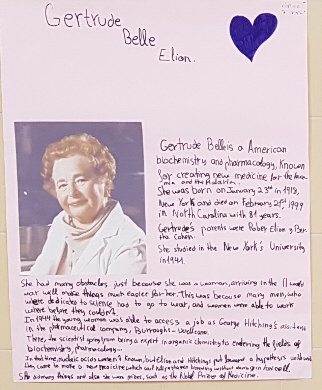 Gertrude
Belle
Elion.
Gertrude Belle is a American
biochemistry and pharmacology, Known
for creating new medicine for the
and the
She was born on January 23rd in 1918,
New York and died on February 21st 1999
in North Carolina with 81 years.
Gertrude's parents were Robert Elion y Ber
tha Cohen.
She studied in the New York's University
in 1941.
She had many obstacles just because she was a woman, arriving in the II world
war well made things much easier for her. This was because many men, who
where dedicated to science has to go to war, and women were able to work
where before they couldn't.
In 1944 the young woman was able to access a job as George Hitching's assistant
in the pharmaceutical company, Burroughs-Wellcome.
There, the scientist going from being a expert in organic chemistry to entering the fields of
biochemistry, pharmacology...
In that time nucleic acids weren't known, but Elion and Hitchings put forward a hypothesis which
they were to make a new medicine which
She many things and also she won prizes, such as the Nobel Prize of Medicine.